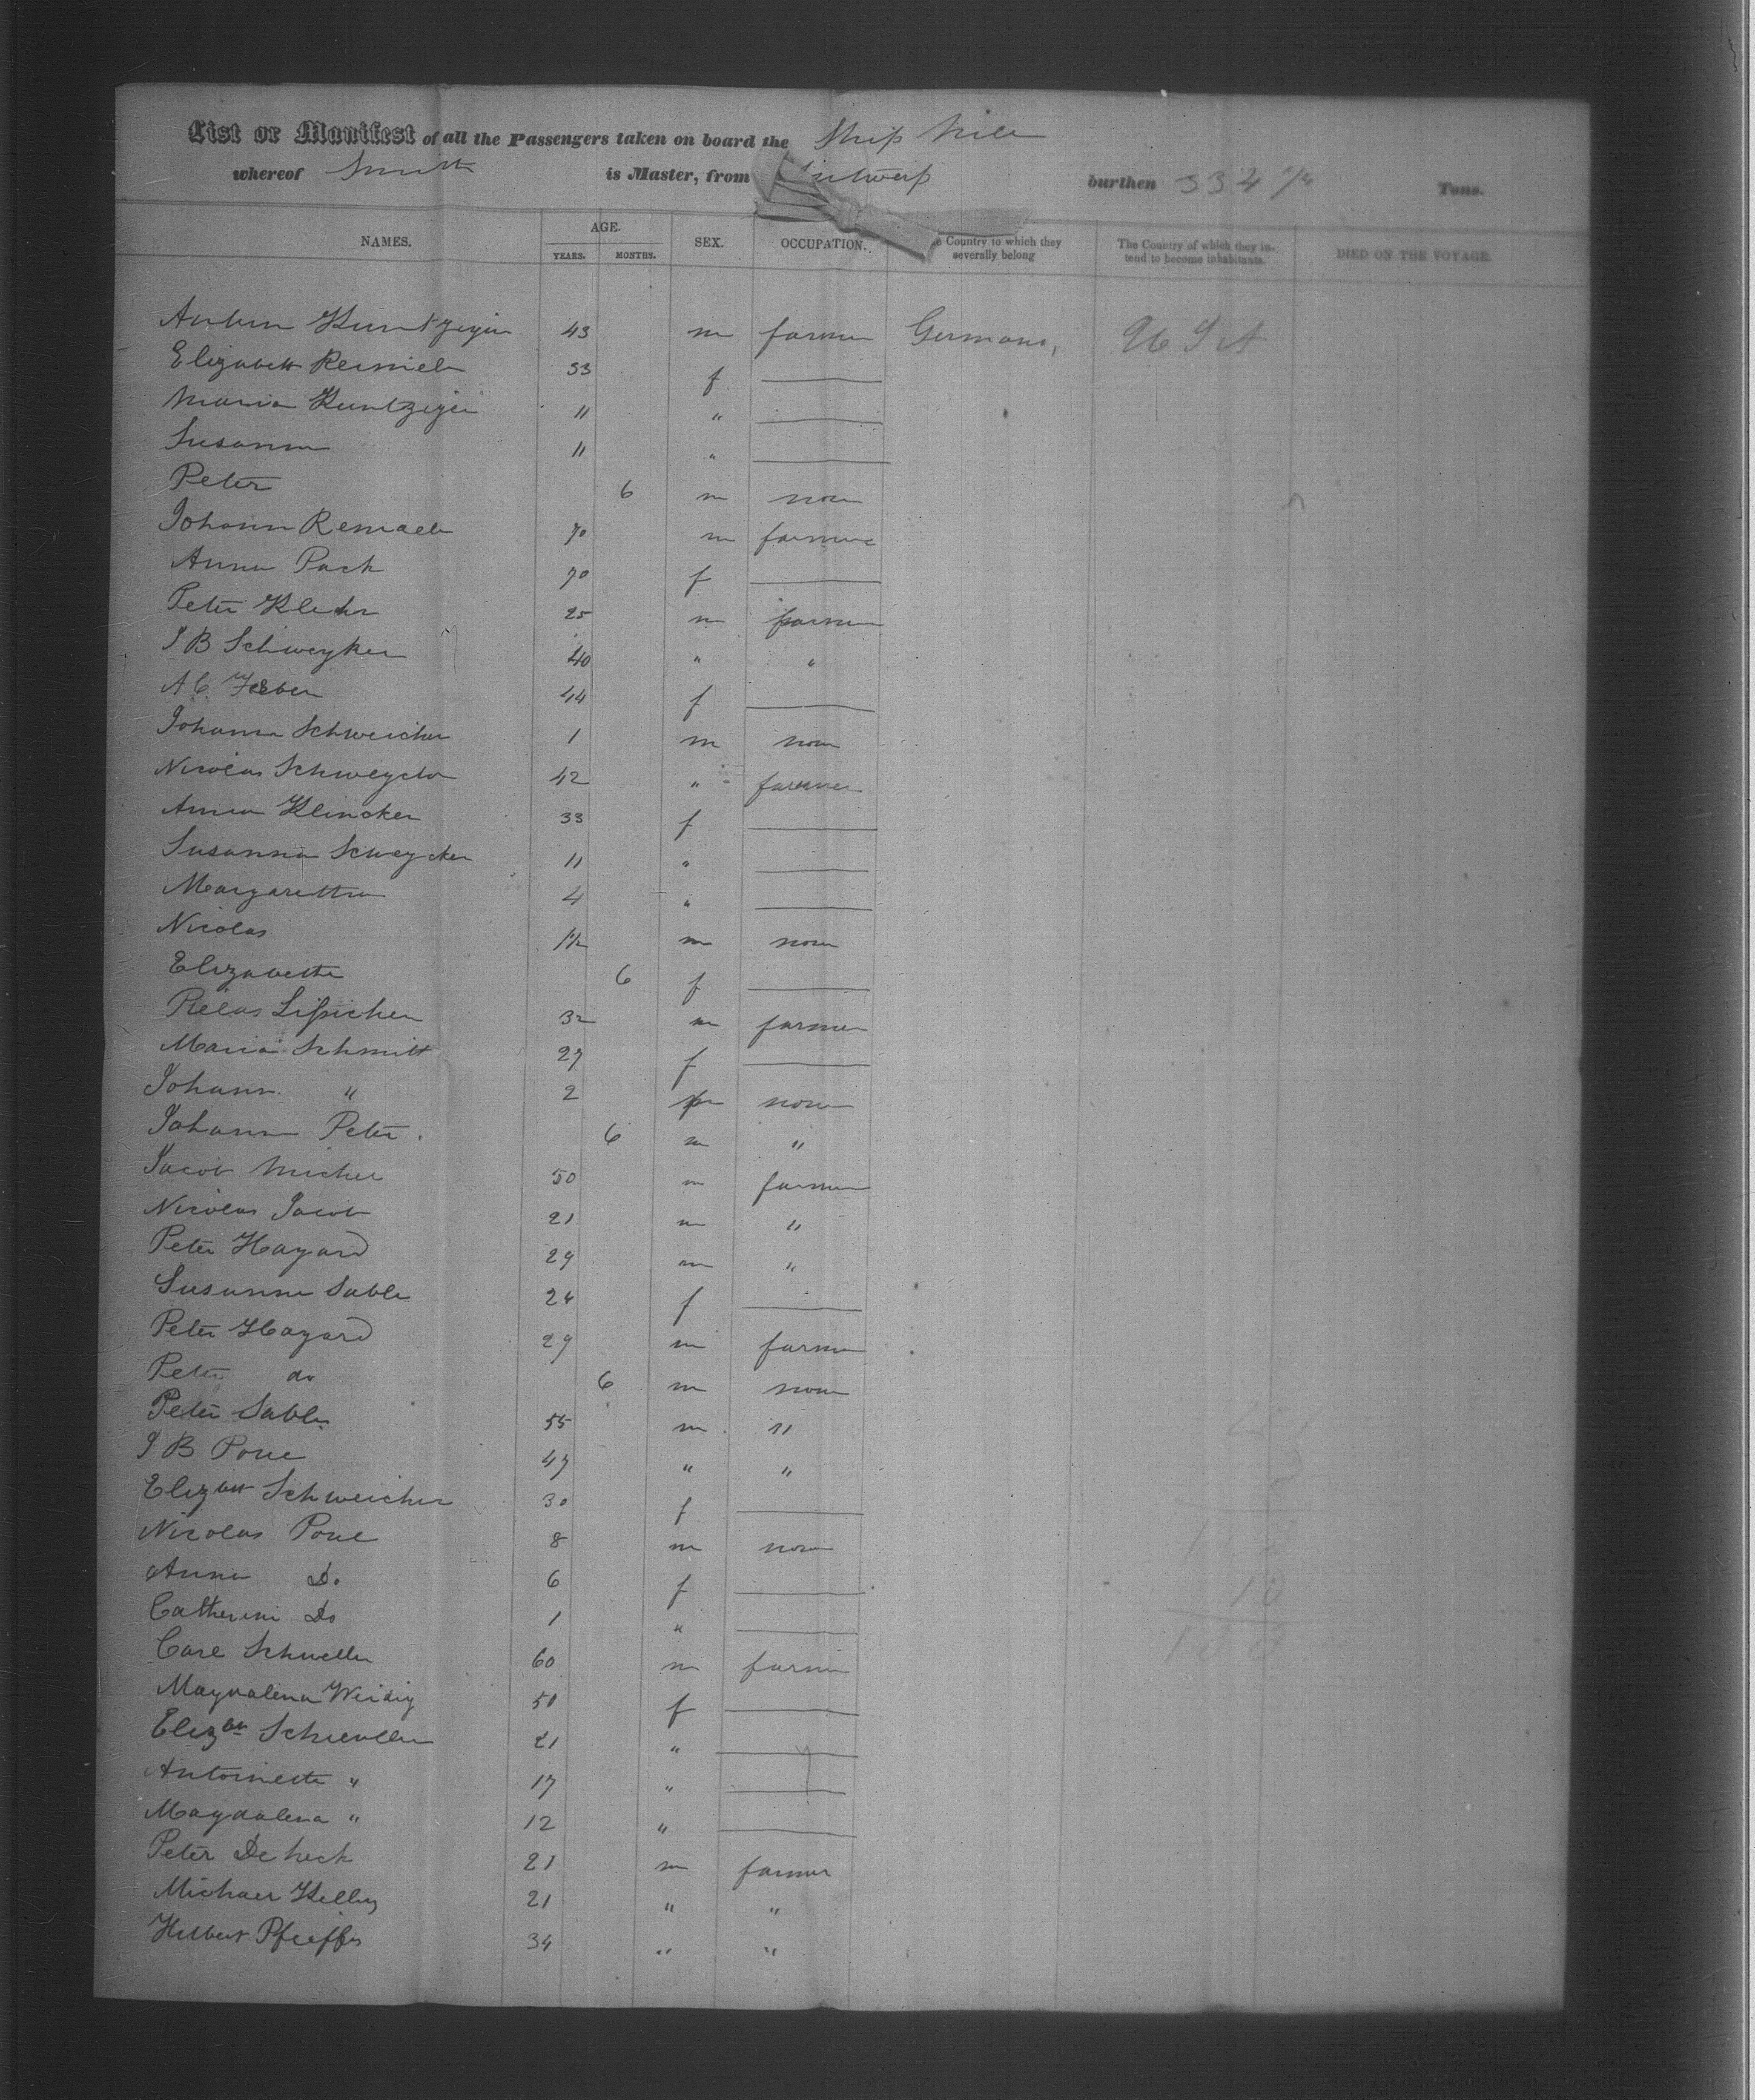 List or Manifest of all the Passengers taken on board the Ship Nile
whereof Smith is Master, from Antwerp burthen 334 Tons.
NAMES. AGE. YEARS. MONTHS. SEX. OCCUPATION. Country to which they severally belong The Country of which they intend to become inhabitants. DIED ON THE VOYAGE.
43 m farmer Germany,
Elizabeth 33 f
Maria Kuntziger 11 "
Susanna 11 "
Peter 6 m none
Johann Remacle 70 m farmer
Anna Pach 70 f
Peter Klehr 25 m farmer
J B Schweyker 40 " "
A C 44 f
Johann Schweicher 1 m none
Nicolas 42 " farmer
Anna Klincker 33 f
Susanna Schweycker 11 "
Margarettha 4 "
Nicolas 1½ m none
Elizabeth 6 f
32 m farmer
Maria Schmitt 27 f
Johann " 2 m none
Johann Peter. 6 m "
Jacob Michel 50 m farmer
Nicolas Jacob 21 m "
Peter Hazard 29 m "
Susanna Sable 24 f
Peter Hazard 29 m farmer
Peter do 6 m none
Peter Sable 55 m "
J B Pone 47 " "
Elizbth Schweicher 30 f
Nicolas Pone 8 m none
Anna Do 6 f
Catherine Do 1 "
Carl Schweller 60 m farmer
Magdalena Weidig 50 f
Elizbth Schweller 21 "
Antoinette " 17 "
Magdalena " 12 "
Peter De heck 21 m farmer
Michael 21 " "
Hubert Pfeiffer 34 " "